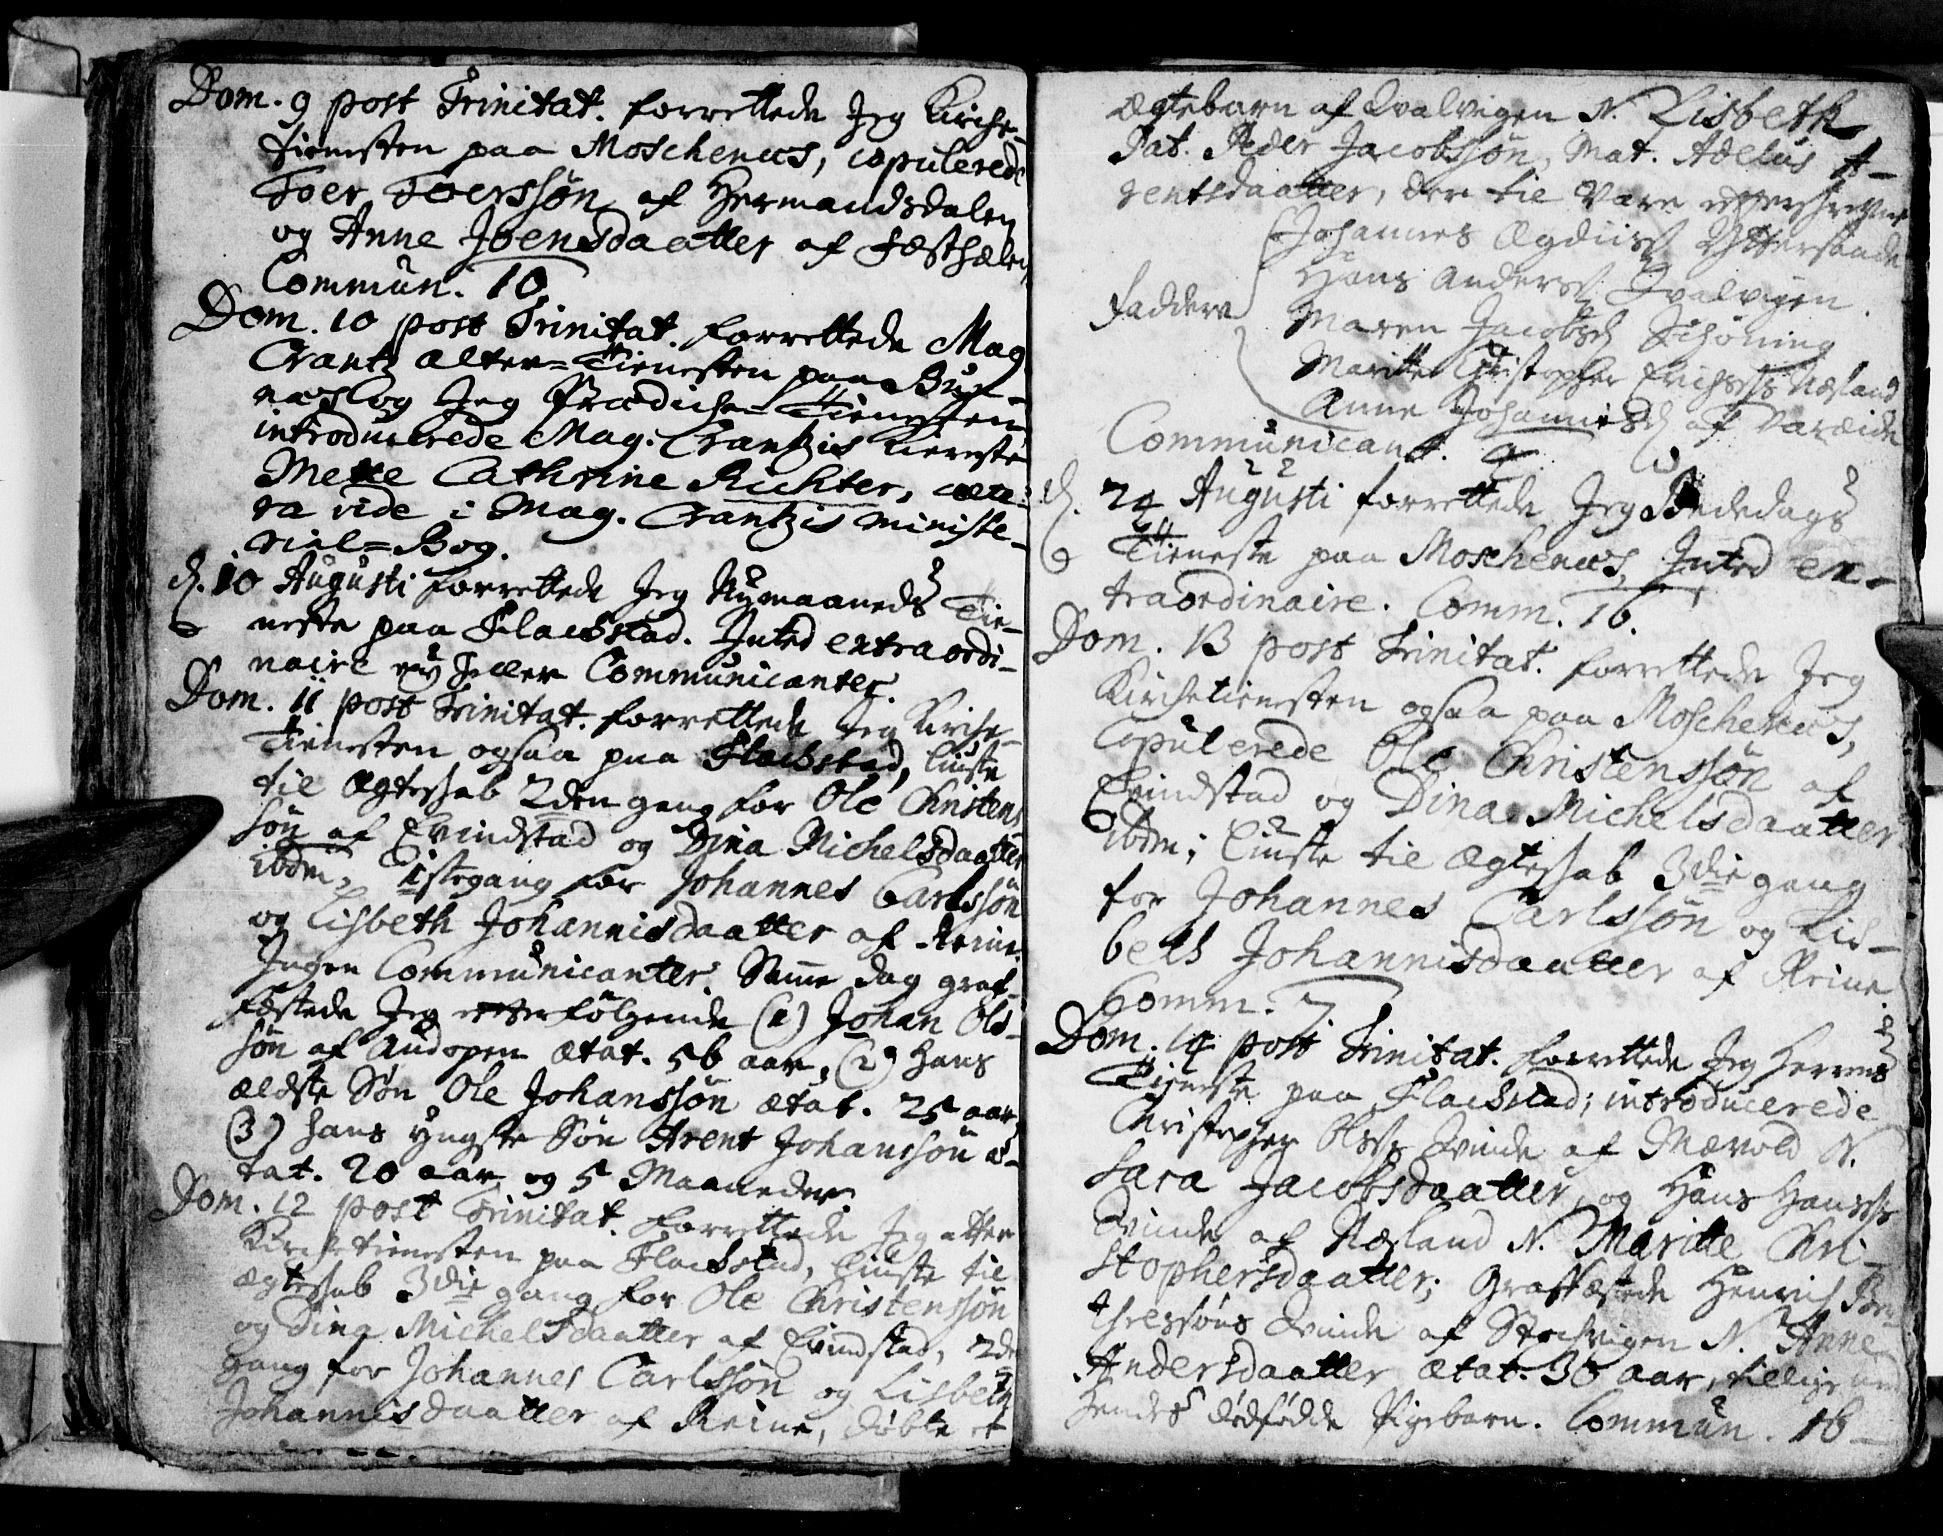 Dom. 9 post Trinitat. forrettede Jeg Kirche-
tienesten paa Moschenæs, copulerede
Toer Toerssøn af Hermandsdalen
og Anne Joensdaatter af
Commun. 10.
Dom. 10 post Trinitat. forrettede Mag.
Crantz alter-Tienesten paa Bux-
næs og Jeg Prædiche-Tienesten
introducerede Mag. Crantzis Kiereste
Mette Cathrine Richter, cæte-
ra vide i Mag. Crantzis Ministe-
rial-Bog.
d. 10 Augusti forrettede Jeg Nymaaneds Tie-
neste paa Flackstad. Inted extraordi-
naire ey heller Communicanter.
Dom. 11 post Trinitat. forrettede Jeg Kirche-
Tienesten ogsaa paa Flackstad, liuste
til Ægteskab 2den gang for Ole Christens
søn af Evindstad og Dina Michelsdaatter
ibdm, 1ste gang for Johannes Carlssøn
og Lisbeth Johannisdaatter af Reine.
Ingen Communicanter. Samme dag graf-
fæstede Jeg efterfølgende (1) Johan Ols-
søn af Andopen ætat. 56 aar, (2) Hans
ældste Søn Ole Johanssøn ætat. 25 aar,
(3) hans yngste Søn Arent Johanssøn æ-
tat. 20 aar og 5 Maaneder.
Dom. 12 post Trinitat. forrettede Jeg atter
Kirchetienesten paa Flackstad, liuste til
ægteskab 3die gang for Ole Christenssøn
og Dina Michelsdaatter af Evindstad, 2den
gang for Johannes Carlssøn og Lisbeth
Johannisdaatter af Reine, døbte et
ægtebarn af Qvalvigen N. Lisbeth,
Pat. Peder Jacobssøn, Mat. Adelus A-
rentsdaatter, der til vare efterskrevne
Johannes Ægdiuss. Yttersande
Hans Anderss. Qvalvigen.
Faddere Maren Jacobsd. Schøning
Maritte Christopher Erichss. Næsland
Anne Johannisd. af Vareide
Communicant. 9
d. 24 Augusti forrettede Jeg Bededags
Tieneste paa Moschenæs, Inted ex-
traordinaire. Comm. 16.
Dom. 13 post Trinitat. forrettede Jeg
Kirchetienesten ogsaa paa Moschenæs,
Copulerede Ole Christenssøn af
Evindstad og Dina Michelsdaatter
ibdm; liuste til Ægteskab 3die gang
for Johannes Carlssøn og Lis-
beth Johannisdaatter af Reine.
Comm. 7
Dom. 14 post Trinitat. forrettede Jeg Herrens
Tieneste paa Flackstad; introducerede
Christopher Olss. Qvinde af Mærvold N.
Sara Jacobsdaatter, og Hans Hanss.
Qvinde af Næsland N. Maritte Chri-
stophersdaatter; Graffæstede Henrich Be-
thressøns Qvinde af Strechvigen N. Anne
Andersdaatter ætat. 36 aar, tillige med
hendes dødfødde Pigebarn. Commun. 16